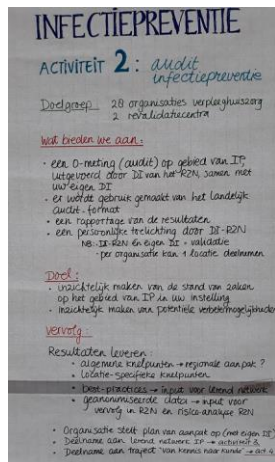 INFECTIEPREVENTIE
ACTIVITEIT 2: audit
infectiepreventie
Doelgroep 28 organisaties verpleeghuiszorg
2 revalidatiecentra
Wat bieden we aan:
• een 0-meting (audit) op gebied van IP,
uitgevoerd door DI van het R2N, samen met
uw eigen DI
• er wordt gebruik gemaakt van het landelijk
audit-format
• een rapportage van de resultaten
• een persoonlijke toelichting door DI-R2N
NB: DI-R2N en eigen DI = validatie
• per organisatie kan 1 locatie deelnemen
Doel:
• inzichtelijk maken van de stand van zaken
op het gebied van IP in uw instelling
• inzichtelijk maken van potentiële verbetermogelijkheden
vervolg:
Resultaten leveren:
• algemene knelpunten → regionale aanpak?
• locatie-specifieke knelpunten
• best-practices → input voor lerend netwerk
• geanonimiseerde data → input voor
vervolg in R2N en risico-analyse R2N
• Organisatie stelt plan van aanpak op (met eigen DI)
• Deelname aan lerend netwerk IP → activiteit 3
• Deelname aan traject "van kennis naar kunde" → act 4